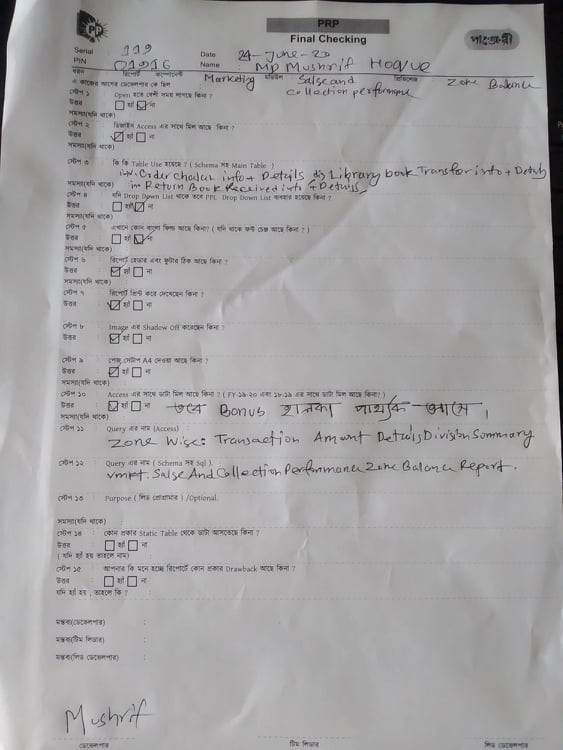 PP
PRP
Final Checking
পাঞ্জেরী
Serial : 119 Date : 24-June-20
PIN : 01916 Name : MD Mushrif Hoque
ধরন : রিপোর্ট কম্পোনেন্ট Marketing মডিউল Salse and collection performance Zone Balance
এ কাজের আগের ডেভেলপার কে ছিল
স্টেপ ১ : Open হতে বেশী সময় লাগছে কিনা ?
উত্তর : হ্যাঁ না
সমস্যা(যদি থাকে)
স্টেপ ২ : ডিজাইন Access এর সাথে মিল আছে কিনা ?
উত্তর : হ্যাঁ না
সমস্যা(যদি থাকে)
স্টেপ ৩ : কি কি Table Use হয়েছে ? ( Schema সহ Main Table )
inv. Order chalan info + Details Library book Transfor into + Details
সমস্যা(যদি থাকে) inv. Return Book Received info + Details
স্টেপ ৪ : যদি Drop Down List থাকে তবে PPL Drop Down List ব্যবহার হয়েছে কিনা ?
উত্তর : হ্যাঁ না
সমস্যা(যদি থাকে)
স্টেপ ৫ : এখানে কোন বাংলা ফিল্ড আছে কিনা? ( যদি থাকে ফন্ট চেঞ্জ আছে কিনা ? )
উত্তর : হ্যাঁ না
সমস্যা(যদি থাকে)
স্টেপ ৬ : রিপোর্ট হেডার এবং ফুটার ঠিক আছে কিনা ?
উত্তর : হ্যাঁ না
সমস্যা(যদি থাকে)
স্টেপ ৭ : রিপোর্ট প্রিন্ট করে দেখেছেন কিনা ?
উত্তর : হ্যাঁ না
সমস্যা(যদি থাকে)
স্টেপ ৮ : Image এর Shadow Off করেছেন কিনা ?
উত্তর : হ্যাঁ না
সমস্যা(যদি থাকে)
স্টেপ ৯ : পেজ সেটাপ A4 দেওয়া আছে কিনা ?
উত্তর : হ্যাঁ না
সমস্যা(যদি থাকে)
স্টেপ ১০ : Access এর সাথে ডাটা মিল আছে কিনা ? ( FY-১৯-২০ এবং ১৮-১৯ এর সাথে ডাটা মিল আছে কিনা? )
উত্তর : হ্যাঁ না তবে Bonus হালকা পার্থক্য আসে।
সমস্যা(যদি থাকে)
স্টেপ ১১ : Query এর নাম (Access)
Zone Wise: Transaction Amount Details Division Summary
স্টেপ ১২ : Query এর নাম ( Schema সহ Sql ).
vmkt. Salse And Collection Performance Zone Balance Report.
স্টেপ ১৩ : Purpose ( লিড প্রোগ্রামার ) /Optional.
সমস্যা(যদি থাকে)
স্টেপ ১৪ : কোন প্রকার Static Table থেকে ডাটা আসতেছে কিনা ?
উত্তর : হ্যাঁ না
( যদি হ্যাঁ হয় তাহলে নাম) :
স্টেপ ১৫ : আপনার কি মনে হচ্ছে রিপোর্টে কোন প্রকার Drawback আছে কিনা ?
উত্তর : হ্যাঁ না
যদি হ্যাঁ হয় , তাহলে কি ? :
মন্তব্য(ডেভেলপার) :
মন্তব্য(টিম লিডার) :
মন্তব্য(লিড ডেভেলপার) :
Mushrif
ডেভেলপার টিম লিডার লিড ডেভেলপার